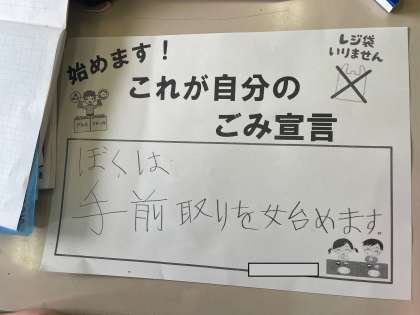 始めます！
レジ袋
いりません
これが自分の
ごみ宣言
ぼくは
手前取りを始めます。